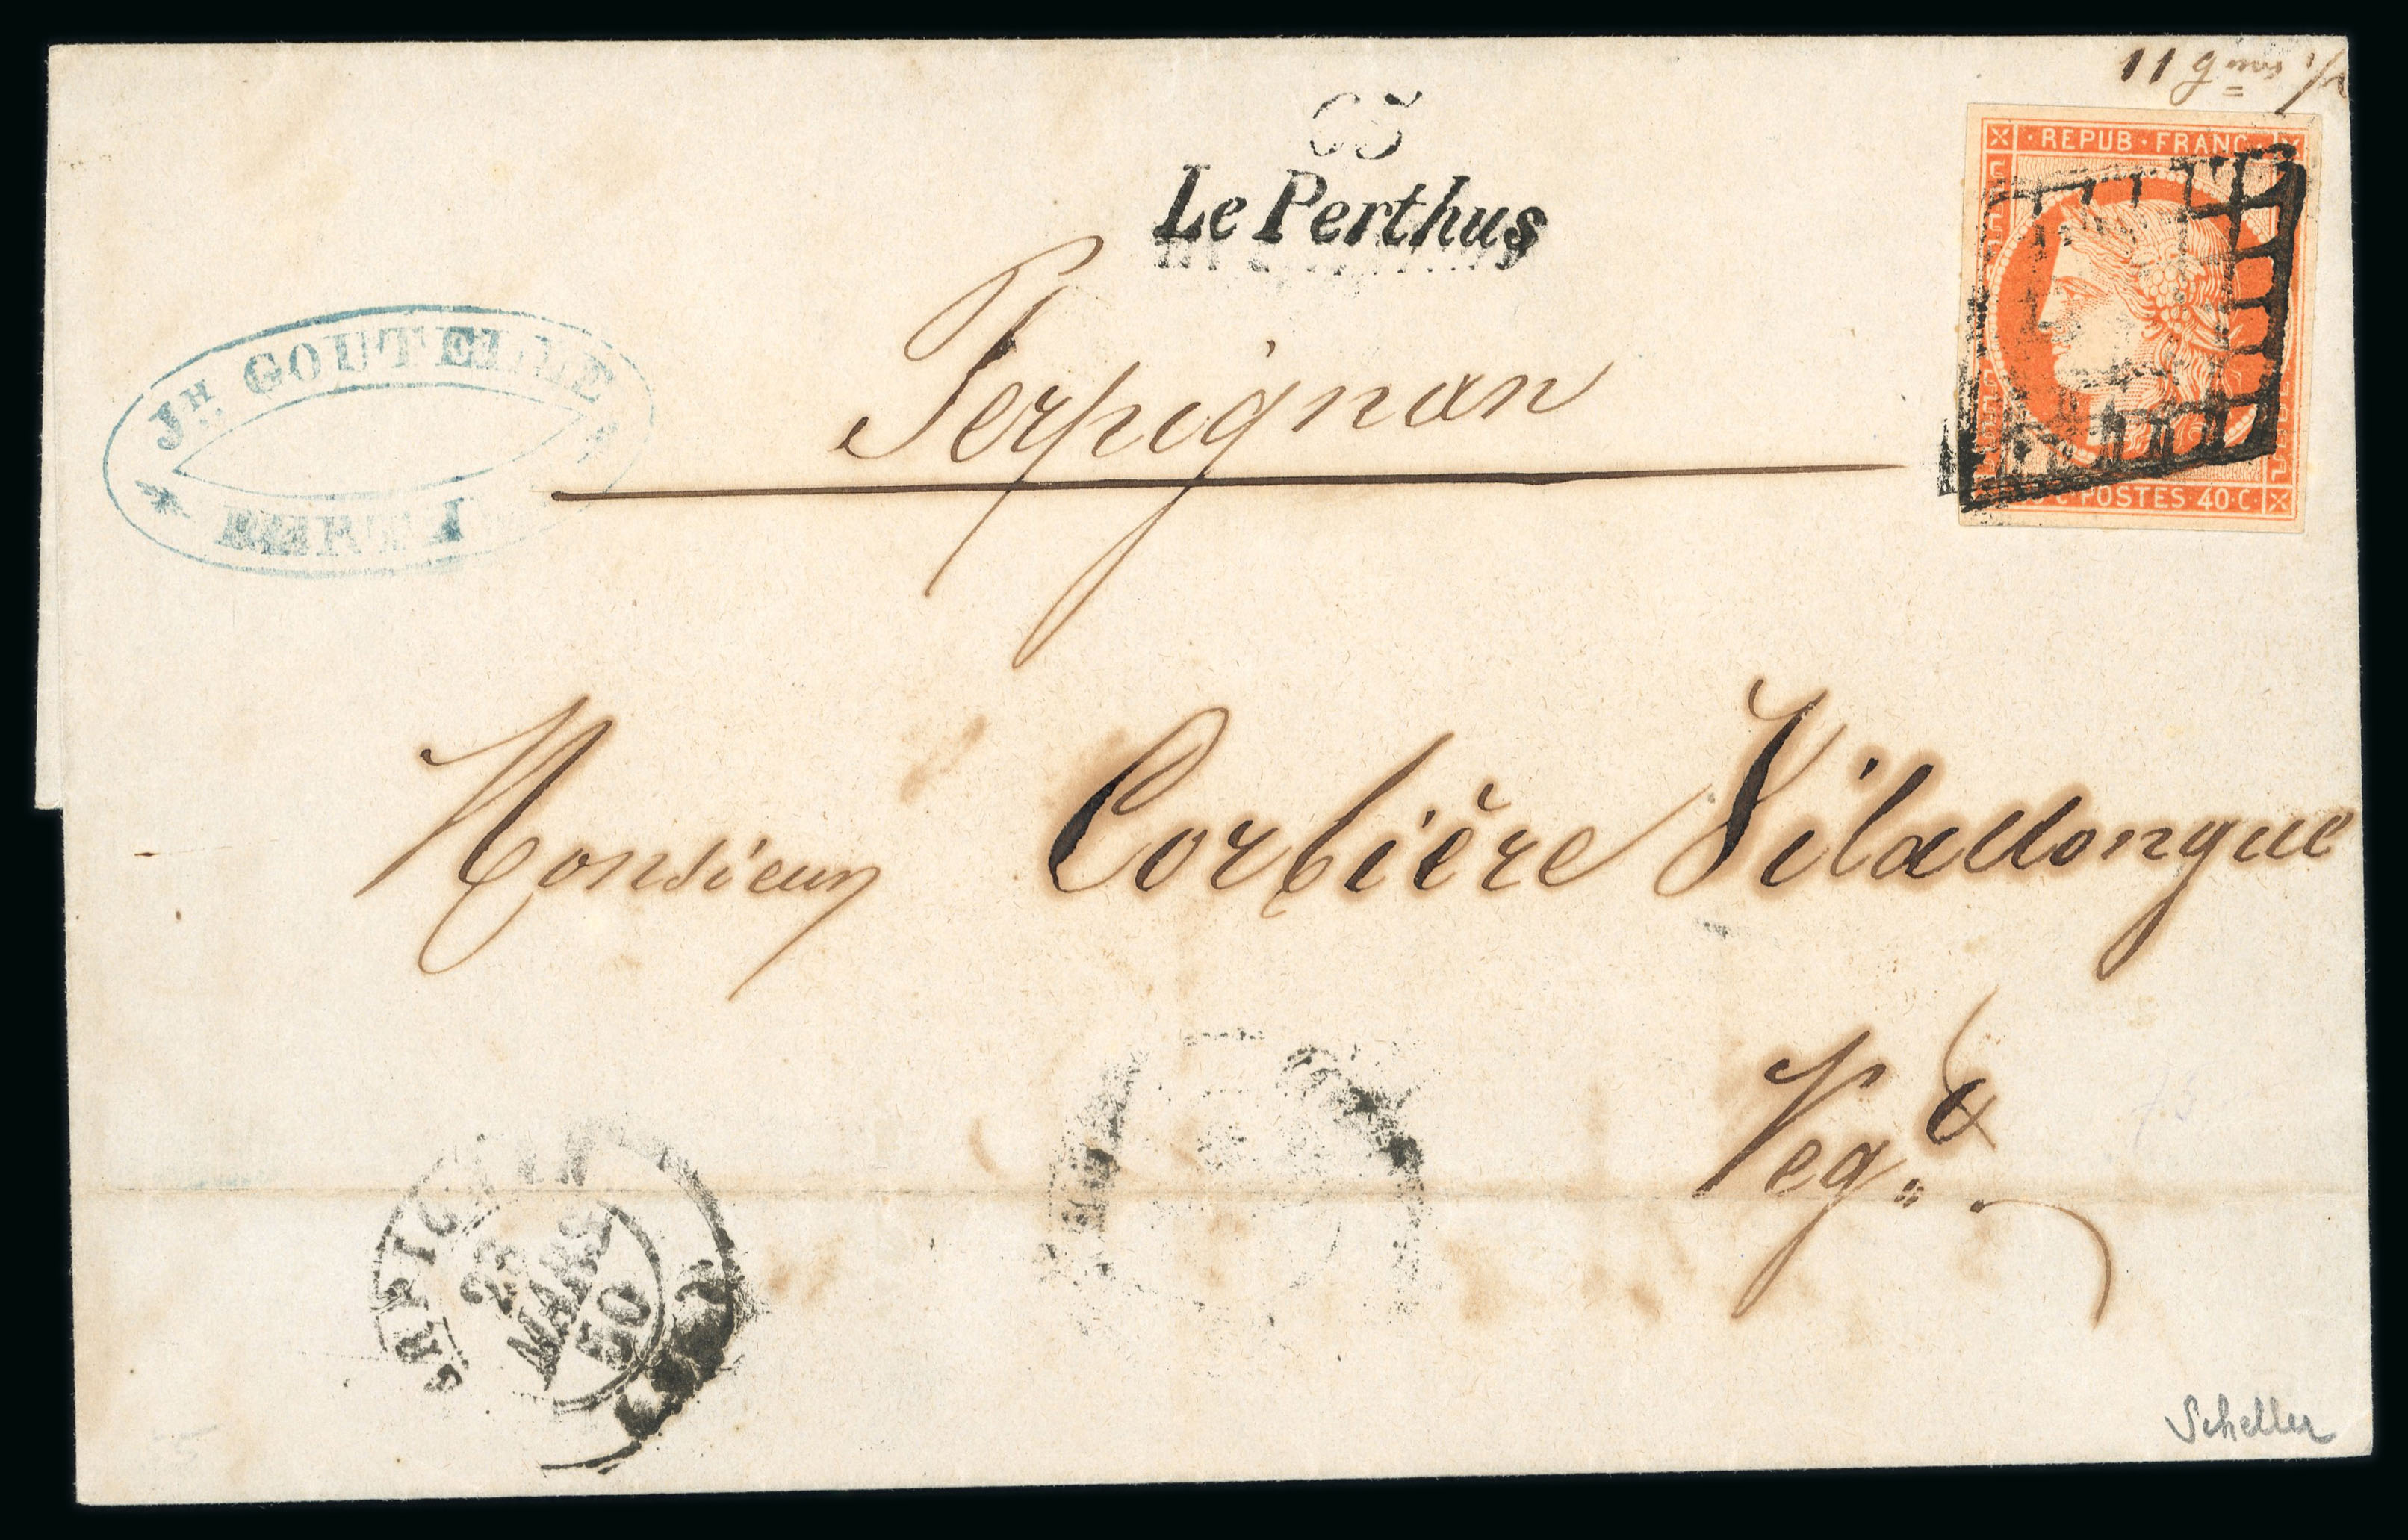 11 gmes 1/2
65
Le Perthus
REPUB · FRANC ·
C · POSTES · 40 · C ·
JH GOUTEILLE
Perpignan
Monsieur Corbière Vilallongue
Negt
PERPIGNAN
23
MARS
50
Scheller